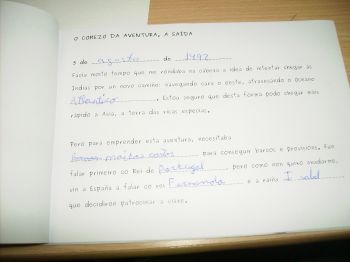 O COMEZO DA AVENTURA, A SAÍDA
3 de agosto de 1492
Facía moito tempo que me rondaba na cabeza a idea de intentar chegar ás
Indias por un novo camiño: navegando cara o oeste, atravesando o Océano
Atlántico. Estou seguro que desta forma podo chegar máis
rápido a Asia, a terra das ricas especias.
Pero para emprender esta aventura, necesitaba
moitos cartos para conseguir barcos e provisións. Fun
falar primeiro co Rei de Portugal pero como non quixo axudarme,
vin a España a falar co rei Fernando e a raíña I
que decidiron patrocinar a viaxe.